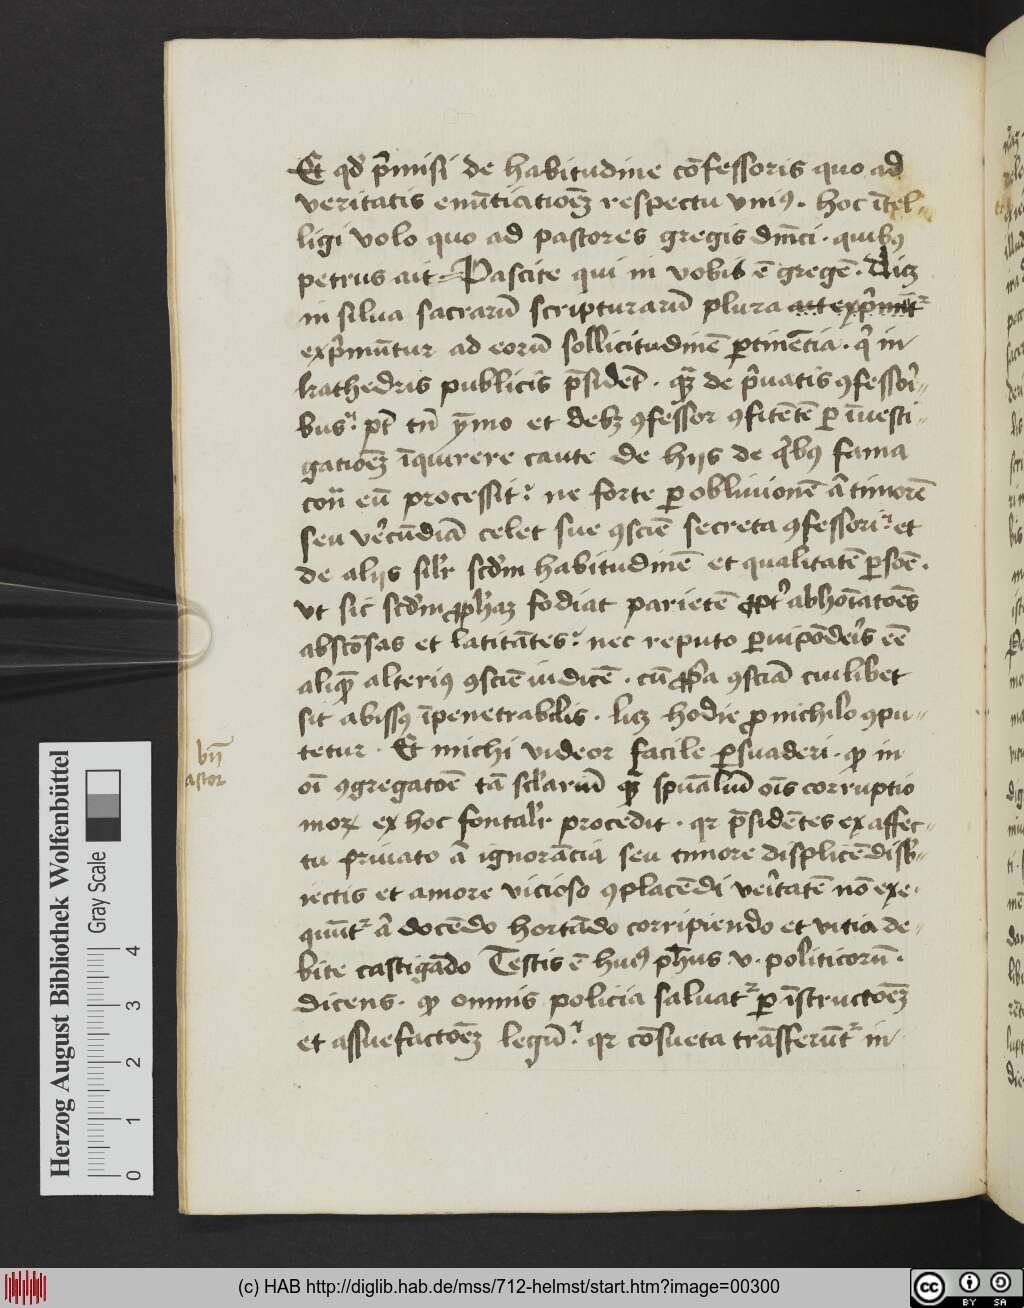 Et qd p̄misi de habitudine cōfessoris quo ad
veritatis enūtiatioēz respectu vniꝰ. hoc ītel-
ligi volo quo ad pastores gregis dn̄ici. quibꝫ
petrus ait Pascite qui in vobis ē gregē. Licꝫ
in silua sacrarū scripturarū plura
exp̄mūtur ad eorū sollicitudinē ꝑtinētia. q̄ in
kathedris publicis p̄sidēt. qͣꝫ de p̄uatis ꝯfessori-
bus. pt̄ tn̄ ymo et debꝫ ꝯfessor ꝯfitētē ꝑ īuesti-
gatioēz īquirere caute de hijs de qͥbꝰ fama
cōn eū processit. ne forte ꝑ obliuionē ā timorē
seu v̓ecūdiā celet sue ꝯsciē secreta ꝯfessori. et
de alijs silr̄ scd̄m habitudinē et qualitatē ꝑsōe.
vt sic scd̄m ꝓph̄iaꝫ fodiat parietē ꝓpt̓ abhoīatoēs
abscōsas et latitātes. nec reputo ꝑuipōdeīs eē
aliqͣꝫ alteriꝰ ꝯsciē iudicē. cū ꝓp̄a ꝯsciā cuilibet
sit abissꝰ īpenetrabilis. licꝫ hodie pro nichilo ꝯpu-
tetur. Et michi videor facile ꝑsuaderi. ꝙ in
oī ꝯgregatoē tā sclariū qͣꝫ spūaliū oīs corruptio
moꝝ ex hoc fontalr̄ procedit. qr p̄sidētes ex affec-
tu priuato ā ignorācia seu timore displicēdi sb̄-
iectis et amore vicioso ꝯplacēdi veritatē nō exe-
quūt̉ ā docēdo hortādo corripiendo et vitia de-
bite castigādo Testis ē huiꝰ ph̄us .v. politicorū.
dicens. ꝙ omnis policia saluat̉ ꝑ īstructoēz
et assuefactoēz legū. qr cōsueta trāsferūt̉ in
astor
Herzog August Bibliothek Wolfenbüttel
Gray Scale
0 1 2 3 4
(c) HAB http://diglib.hab.de/mss/712-helmst/start.htm?image=00300
cc BY SA